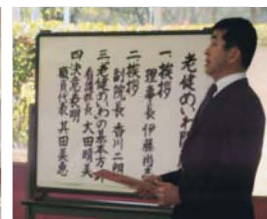 老健のいわ開
一、挨拶
理事長 伊藤尚志
二、挨拶
副院長 香川二朗
三、老健のいわの基本方針
看護部長 太田明美
四、決意表明
職員代表 井田美恵